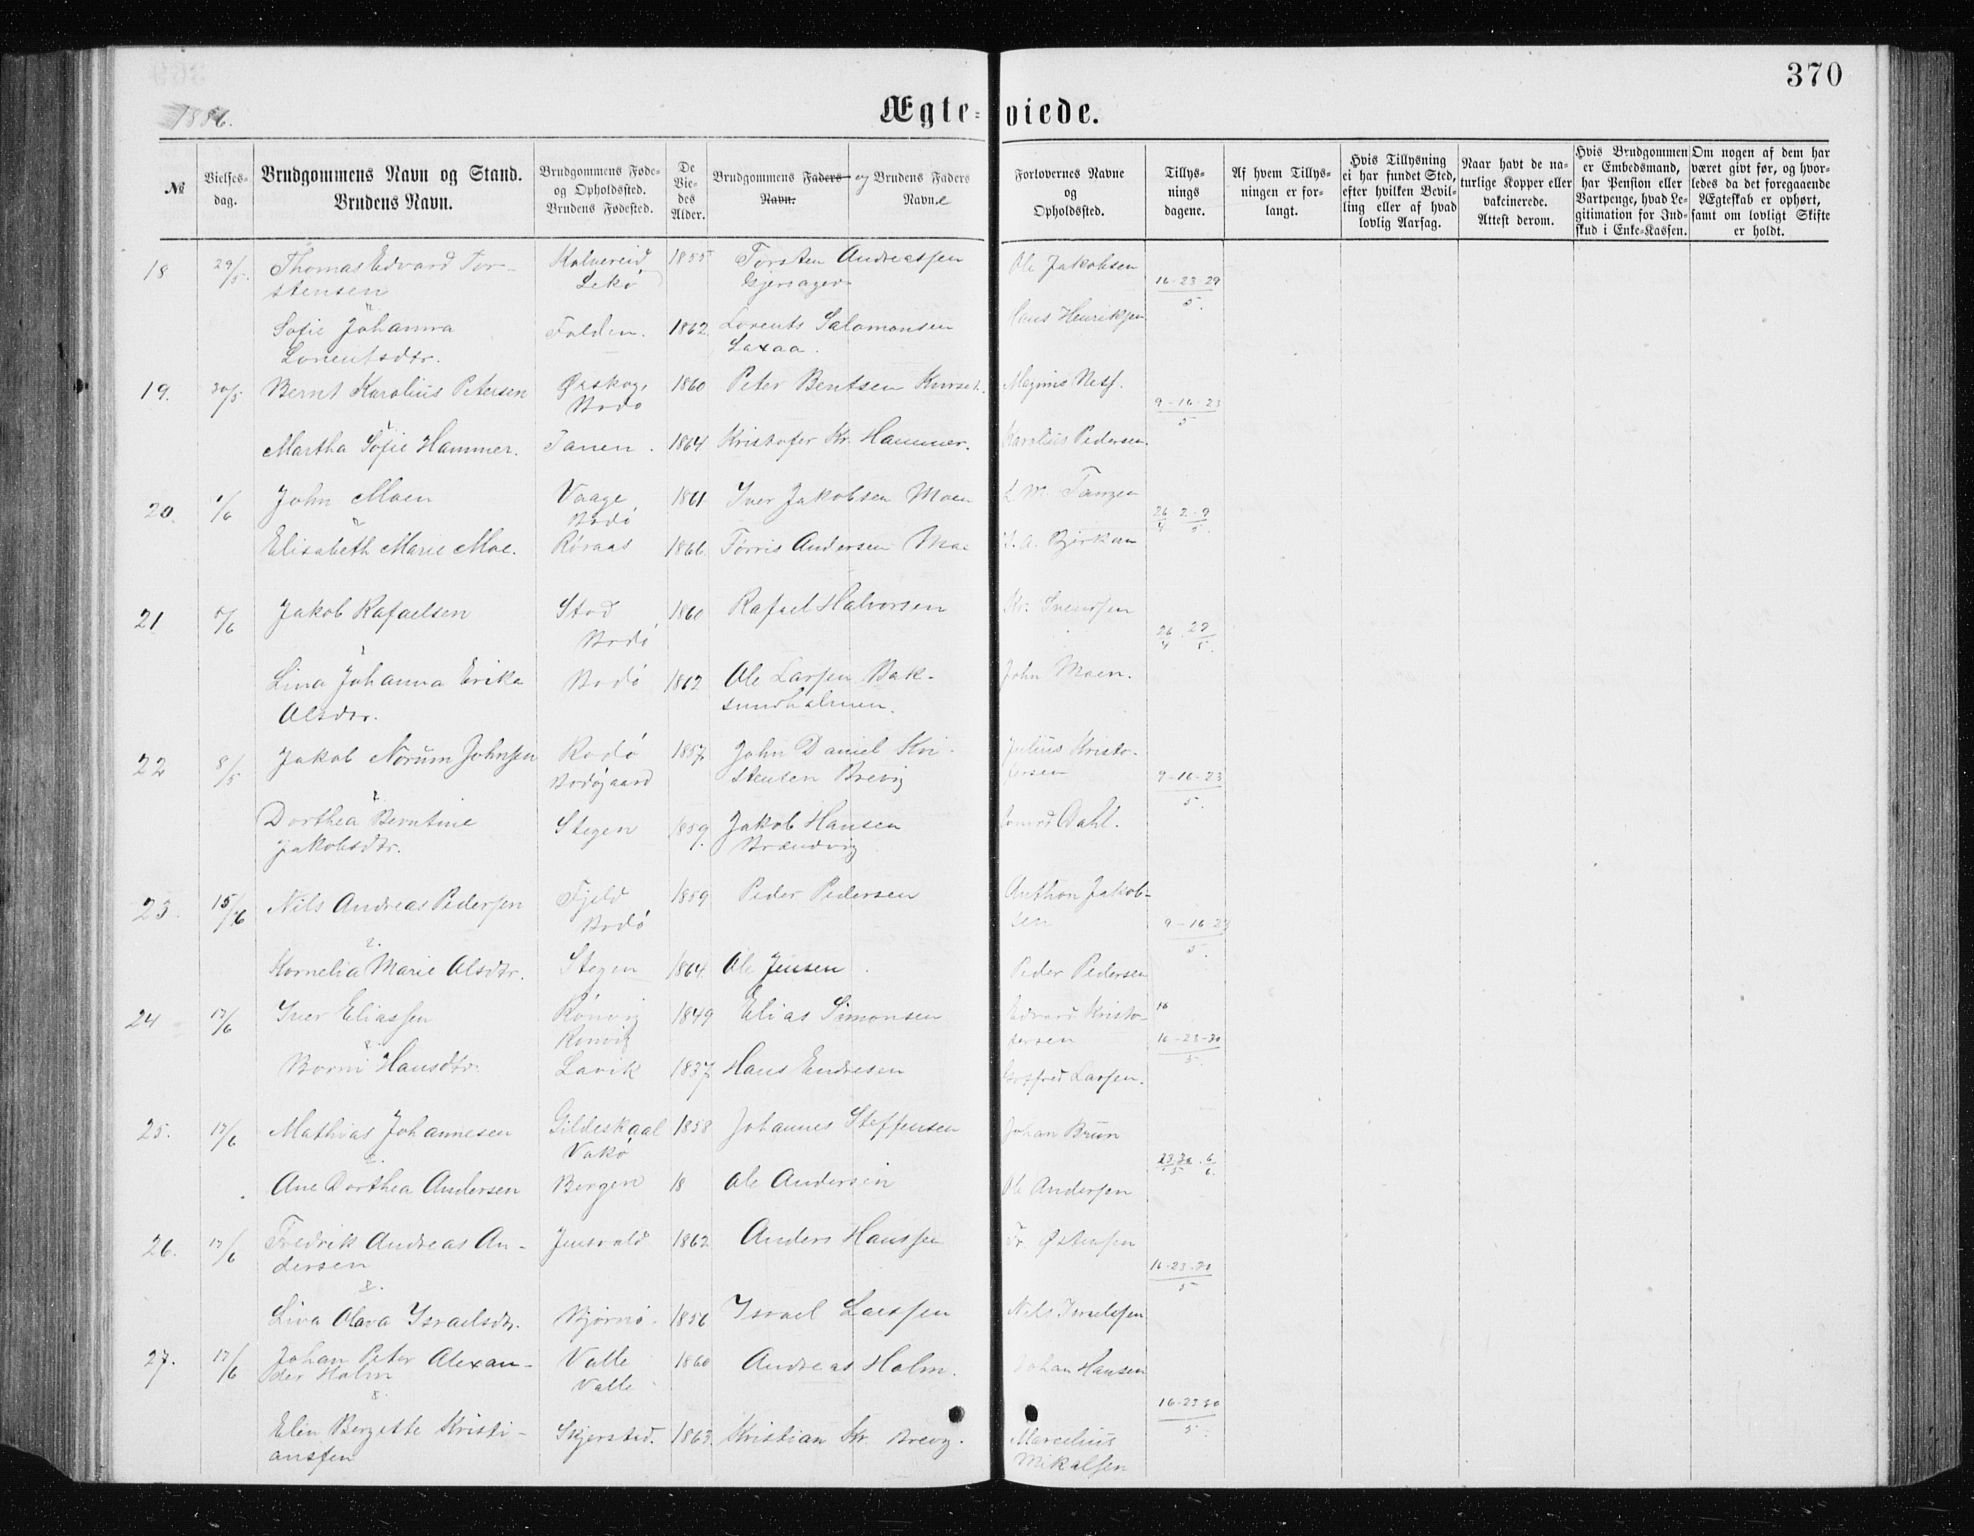 370
1886.
Ægte-viede.
№
Vielses-dag.
Brudgommens Navn og Stand.
Brudens Navn.
Brudgommens Føde-
og Opholdssted.
Brudens Fødested.
De
Vie-
des
Alder.
Brudgommens Faders og Brudens Faders
Navn. Navne
Forlovernes Navne
og
Opholdssted.
Tillys-
nings
dagene.
Af hvem Tillys-
ningen er for-
langt.
Hvis Tillysning
ei har fundet Sted,
efter hvilken Bevil-
ling eller af hvad
lovlig Aarsag.
Naar havt de na-
turlige Kopper eller
vakcinerede.
Attest derom.
Hvis Brudgommen
er Embedsmand,
har Pension eller
Vartpenge, hvad Le-
gitimation for Ind-
skud i Enke-Kassen.
Om nogen af dem har
været givt før, og hvor-
ledes da det foregaaende
Ægteskab er ophørt,
samt om lovligt Skifte
er holdt.
18 29/5. Thomas Edvard Tor- Kolvereid 1855 Torsten Andreassen Ole Jakobsen
stensen Lekø Gjersager 16-23-29
5.
Sofie Johanna Folden. 1862 Lorents Salomonsen Hans Henriksen
Lorentsdtr. Laxaa.
19. 30/5 Bernt Karolius Petersen Ørskog, 1860 Peter Bentsen Magnus
Bodø 9-16-23
5
Martha Sofie Hammer. Tanen. 1864 Kristofer Kr. Hammer. Karolius Pedersen
20. 1/6 John Moen Vaage 1861 Iver Jakobsen Moen L. M.
Bodø 26/4 2-9/5.
Elisabeth Marie Moe. Røraas 1866 Førris Andersen Moe
21 6/6 Jakob Rafaelsen Stod 1860 Rafael Halvorsen Kr. Svendsen
Bodø 26/4 29/5.
Lina Johanna Erika Bodø 1862 Ole Larsen Bak- John Moen.
Olsdtr. sundholmen.
22 8/5 Jakob Norum Johnsen Rødø 1857 John Daniel Kri- Julius Kristo-
Bodøgaard stensen Brevig fersen 9-16-23
5.
Dorthea Berntine Stegen 1859. Jakob Hansen Dahl.
Jakobsdtr. Brændvig
23. 15/6 Nils Andreas Pedersen Fjeld 1859 Peder Pedersen Anthon Jakob-
Bodø sen 9-16-23
5.
Kornelia Marie Olsdtr. Stegen 1864 Ole Jensen Peder Pedersen
24 17/6 Iver Eliassen Rønvig 1849 Elias Simonsen Edvard Kristo- 16
Rønvig fersen 16-23-30
5
Hansdtr. Lavik 1837 Hans Endresen Gotfred Larsen.
25. 17/6 Mathias Johannesen Gildeskaal 1858 Johannes Steffensen Johan Brun
Vakø 23 30/5 . 6/6
Ane Dorthea Andersen Bergen 18 Ole Andersen Ole Andersen
26. 17/6 Fredrik Andreas An- Jensvold 1862 Anders Hanssen Fr. Østensen
dersen 16-23-30
5
Liva Olava Israelsdtr. Bjørnø. 1856 Israel Larssen Nils Israelssen
27. 17/6 Johan Peter Alexan- Valle 1860 Andreas Holm. Johan Hansen
der Holm Valle 16-23 30
5
Elin Bergitte Kristi- Skjerstad. 1863. Kristian Kr. Brevig. Marcelius
anssen Mikalsen